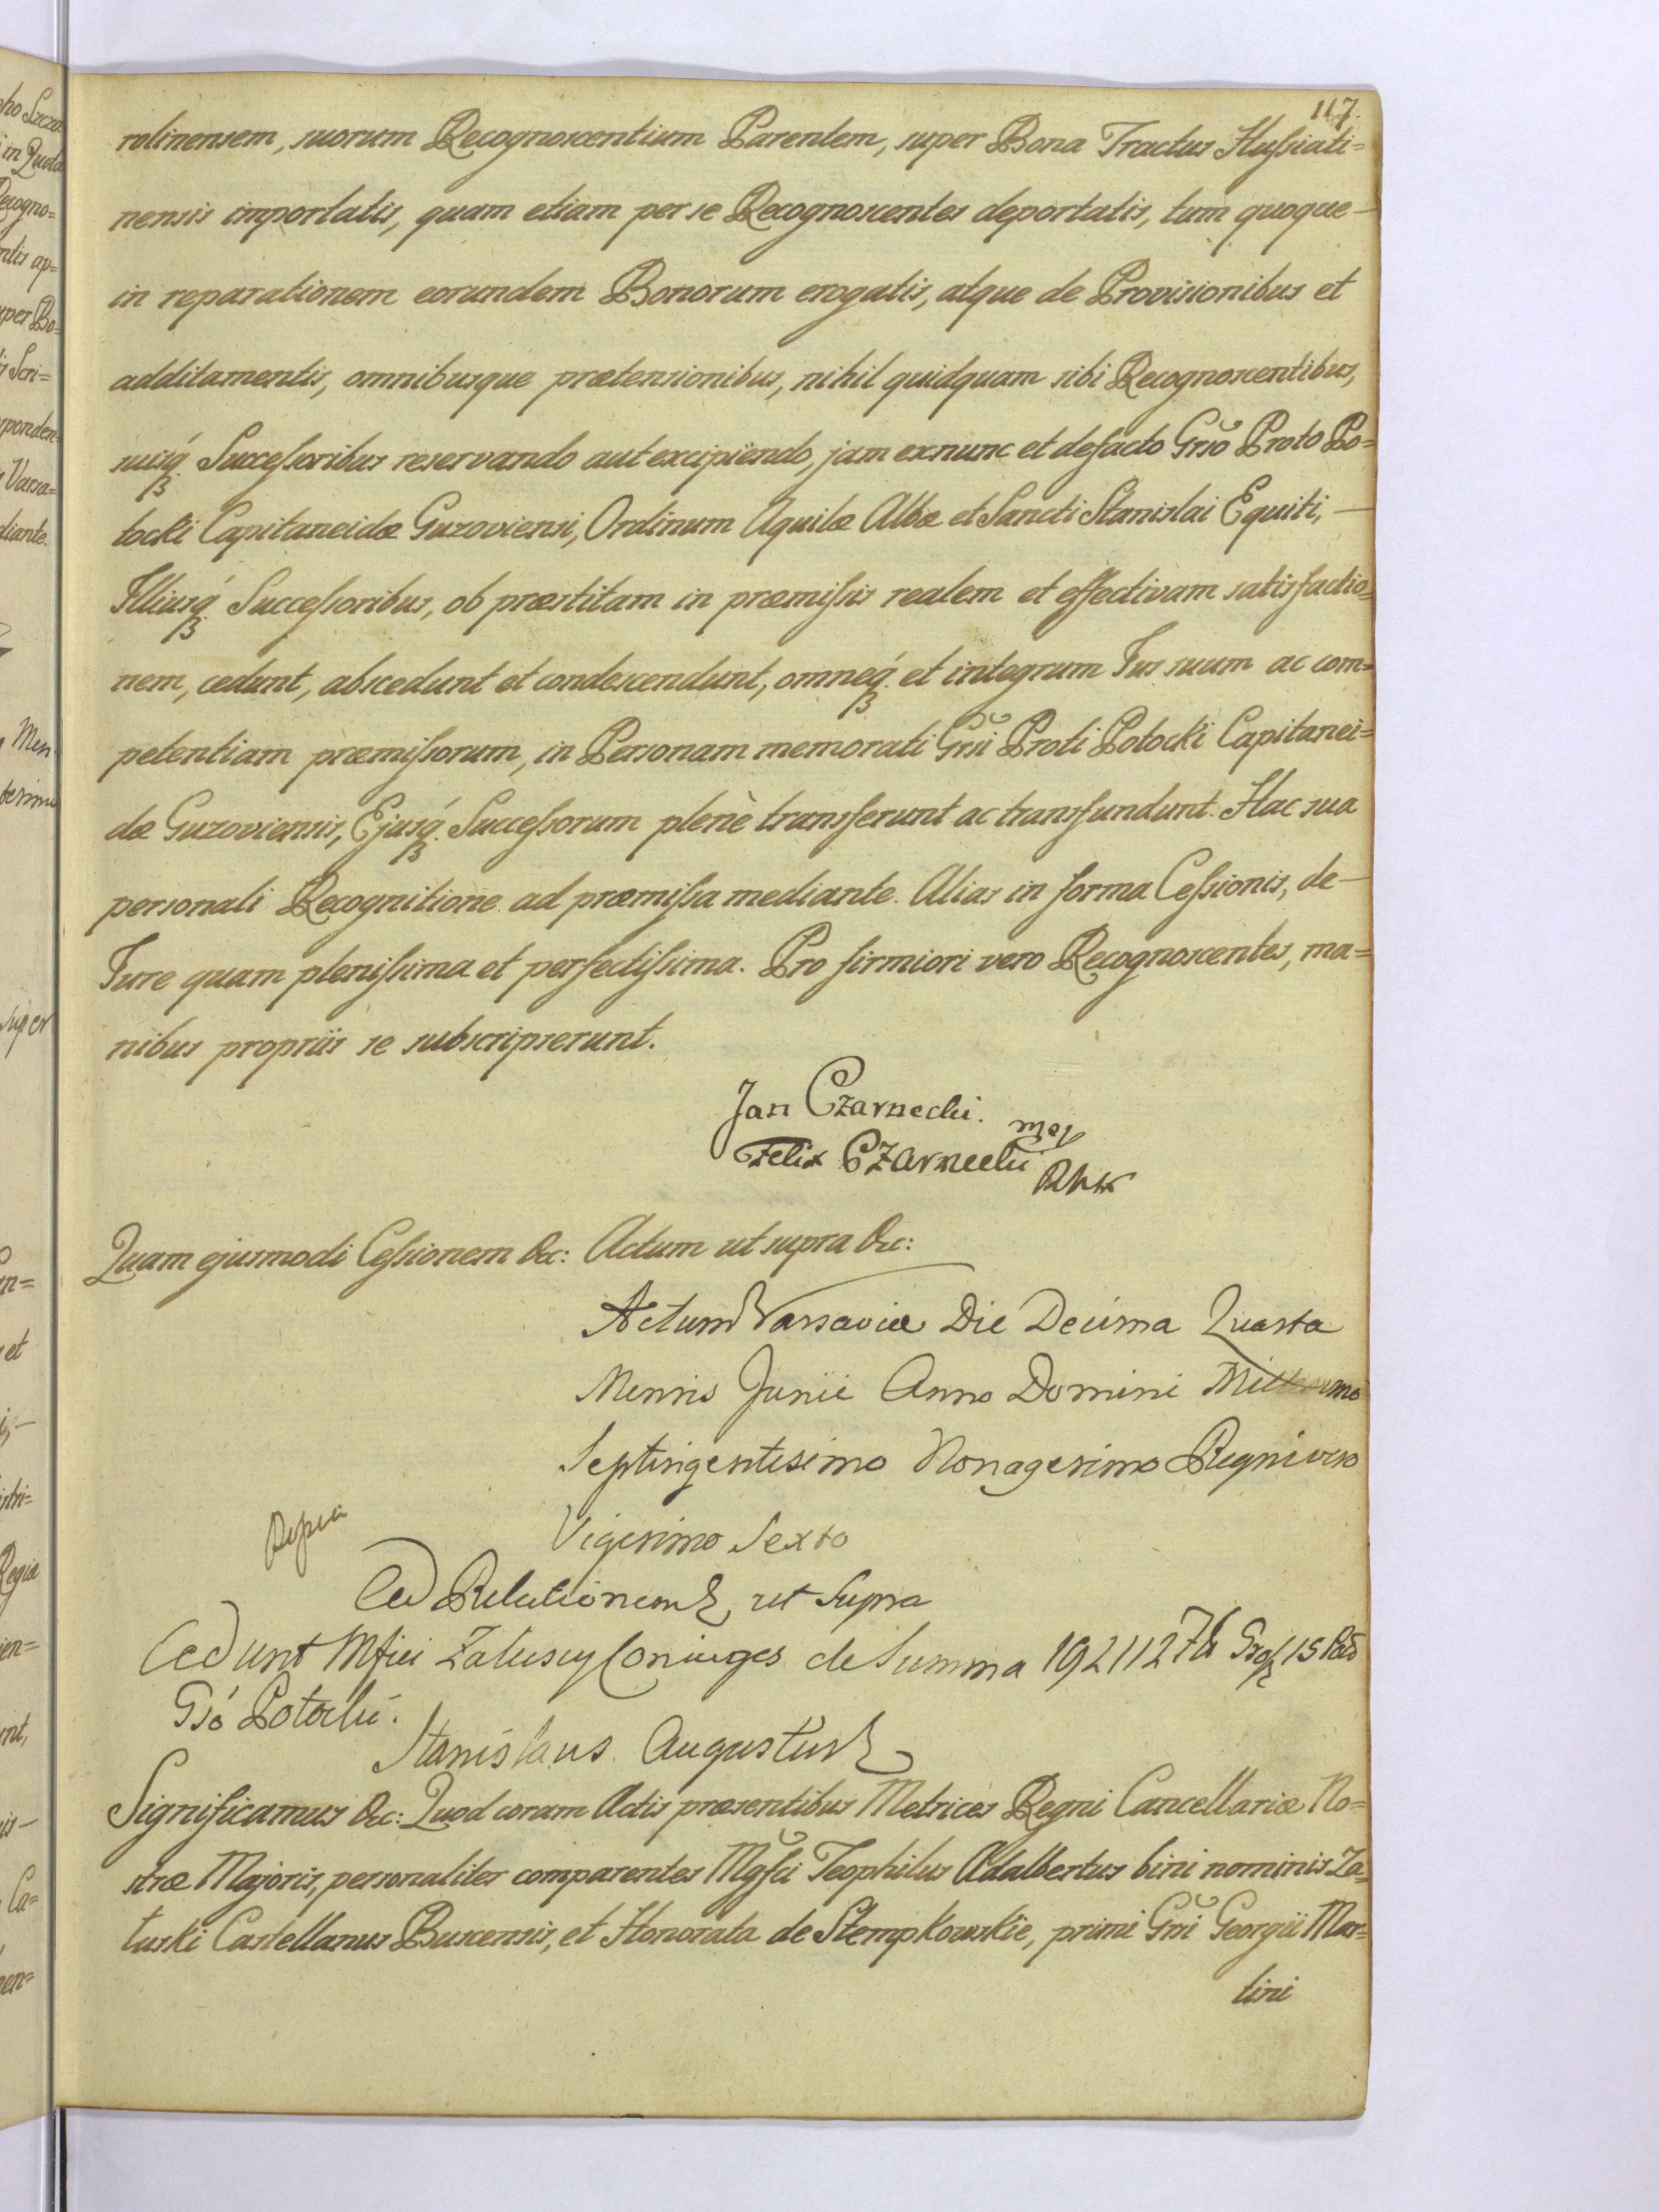 117.
rolinensem, suorum Recognoscentium Parentem, super Bona Tractus Husiati=
nensis importatis, quam etiam per se Recognoscentes deportatis, tum quoque —
in reparationem eorundem Bonorum erogatis, atque de Provisionibus et
additamentis, omnibusque prætensionibus, nihil quidquam sibi Recognoscentibus,
suisq́ Successoribus reservando aut excipiendo, jam exnunc et defacto Grso Proto Po=
tocki Capitaneidæ Guzoviensi, Ordinum Aquilæ Albæ et Sancti Stanislai Equiti, —
Illiusq́ Successoribus, ob præstitam in præmissis realem et effectivam satisfactio=
nem, cedunt, abscedunt et condescendunt, omneq́ et integrum Jus suum ac com=
petentiam præmissorum, in Personam memorati Grsi Proti Potocki Capitanei=
dæ Guzoviensis, Ejusq́ Successorum plenè transferunt ac transfundunt. Hac sua
personali Recognitione ad præmissa mediante. Alias in forma Cessionis, de —
Jure quam plenissima et perfectissima. Pro firmiori vero Recognoscentes, ma=
nibus propriis se subscripserunt.
Jan Czarnecki.
Felix Czarnecki
Quam ejusmodi Cessionem &c: Actum ut supra &c:
Actum Varsaviæ Die Decima Quarta
Mensis Junii Anno Domini Millesimo
Septingentesimo Nonagesimo Regni vero
Vigesimo Sexto
Ad Relationem ut supra
Cedunt Mfici Zaluscy Coniuges de Summa 192112
Gso Potocki.
Stanislaus Augustus
Significamus &c: Quod coram Actis præsentibus Metrices Regni Cancellariæ No=
stræ Majoris, personaliter comparentes Mgfci Teophilus Adalbertus bini nominis Za=
łuski Castellanus Buscensis, et Honorata de Stempkowskie, primi Grsi Georgii Mar=
tini